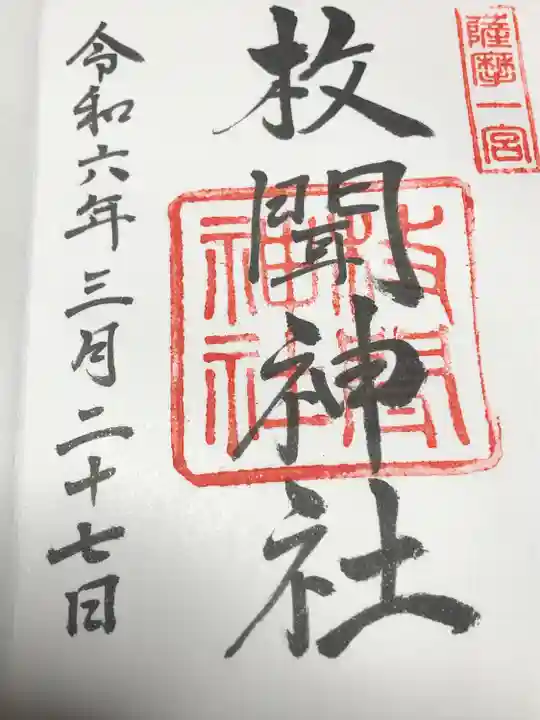 薩摩一宮
枚聞神社
枚聞
神社
令和六年三月二十七日